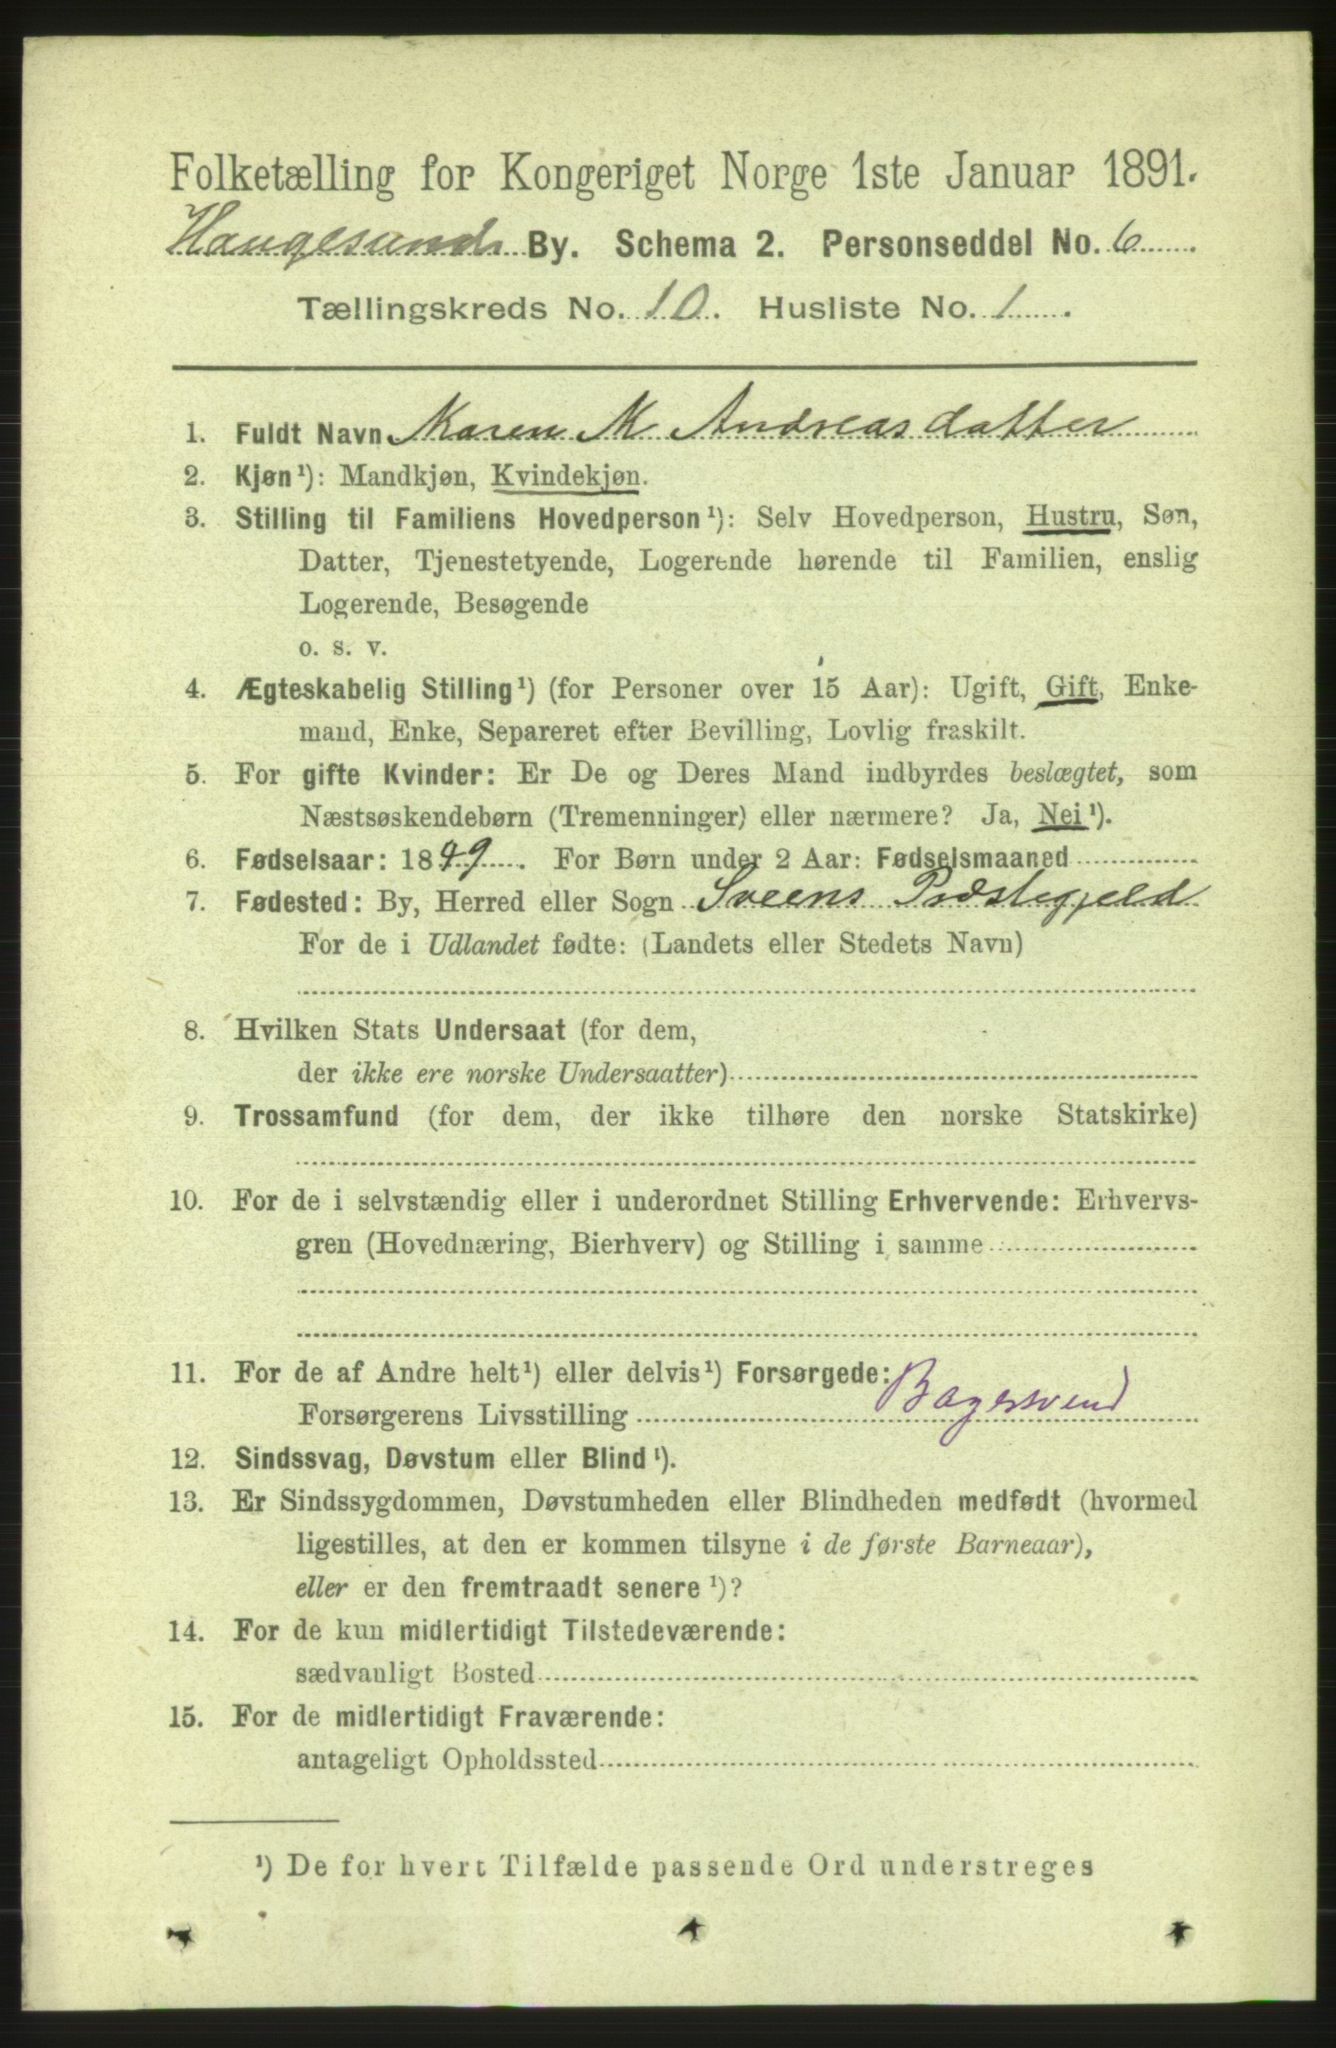 Folketælling for Kongeriget Norge 1ste Januar 1891.
Haugesunds By. Schema 2. Personseddel No. 6
Tællingskreds No. 10. Husliste No. 1.
1. Fuldt Navn Maren M Andreasdatter
2. Kjøn¹): Mandkjøn, Kvindekjøn.
3. Stilling til Familiens Hovedperson¹): Selv Hovedperson, Hustru, Søn,
Datter, Tjenestetyende, Logerende hørende til Familien, enslig
Logerende, Besøgende
o. s. v.
4. Ægteskabelig Stilling¹) (for Personer over 15 Aar): Ugift, Gift, Enke-
mand, Enke, Separeret efter Bevilling, Lovlig fraskilt.
5. For gifte Kvinder: Er De og Deres Mand indbyrdes beslægtet, som
Næstsøskendebørn (Tremenninger) eller nærmere? Ja, Nei¹).
6. Fødselsaar: 1849. For Børn under 2 Aar: Fødselsmaaned
7. Fødested: By, Herred eller Sogn Sveens Præstegjeld
For de i Udlandet fødte: (Landets eller Stedets Navn)
8. Hvilken Stats Undersaat (for dem,
der ikke ere norske Undersaatter)
9. Trossamfund (for dem, der ikke tilhøre den norske Statskirke)
10. For de i selvstændig eller i underordnet Stilling Erhvervende: Erhvervs-
gren (Hovednæring, Bierhverv) og Stilling i samme
11. For de af Andre helt¹) eller delvis¹) Forsørgede:
Forsørgerens Livsstilling Bagersvend
12. Sindssvag, Døvstum eller Blind¹).
13. Er Sindssygdommen, Døvstumheden eller Blindheden medfødt (hvormed
ligestilles, at den er kommen tilsyne i de første Barneaar),
eller er den fremtraadt senere¹)?
14. For de kun midlertidigt Tilstedeværende:
sædvanligt Bosted
15. For de midlertidigt Fraværende:
antageligt Opholdssted
¹) De for hvert Tilfælde passende Ord understreges